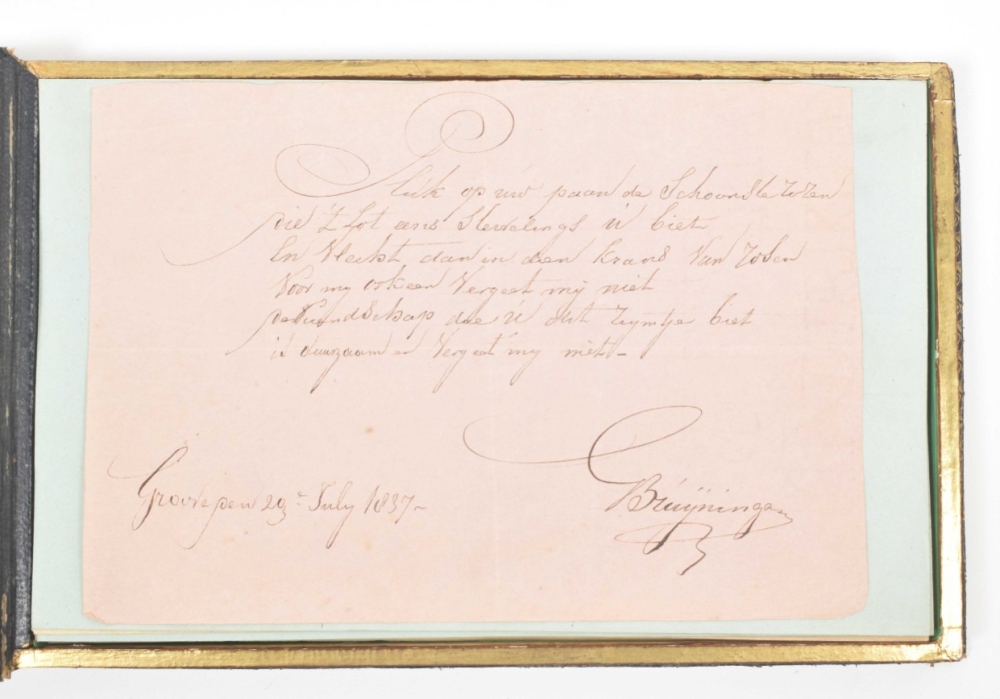 Pluk op uw paan de Schoonste rozen
die 't Lot ons Stervelings U biet
En Vlecht dan in dien krans Van rosen
Voor my ook een Vergeet mij niet
de Vriendschap die U dit rymtje biet
is duurzaam en Vergeet my niet -
29 July 1837 -
Bruijninga